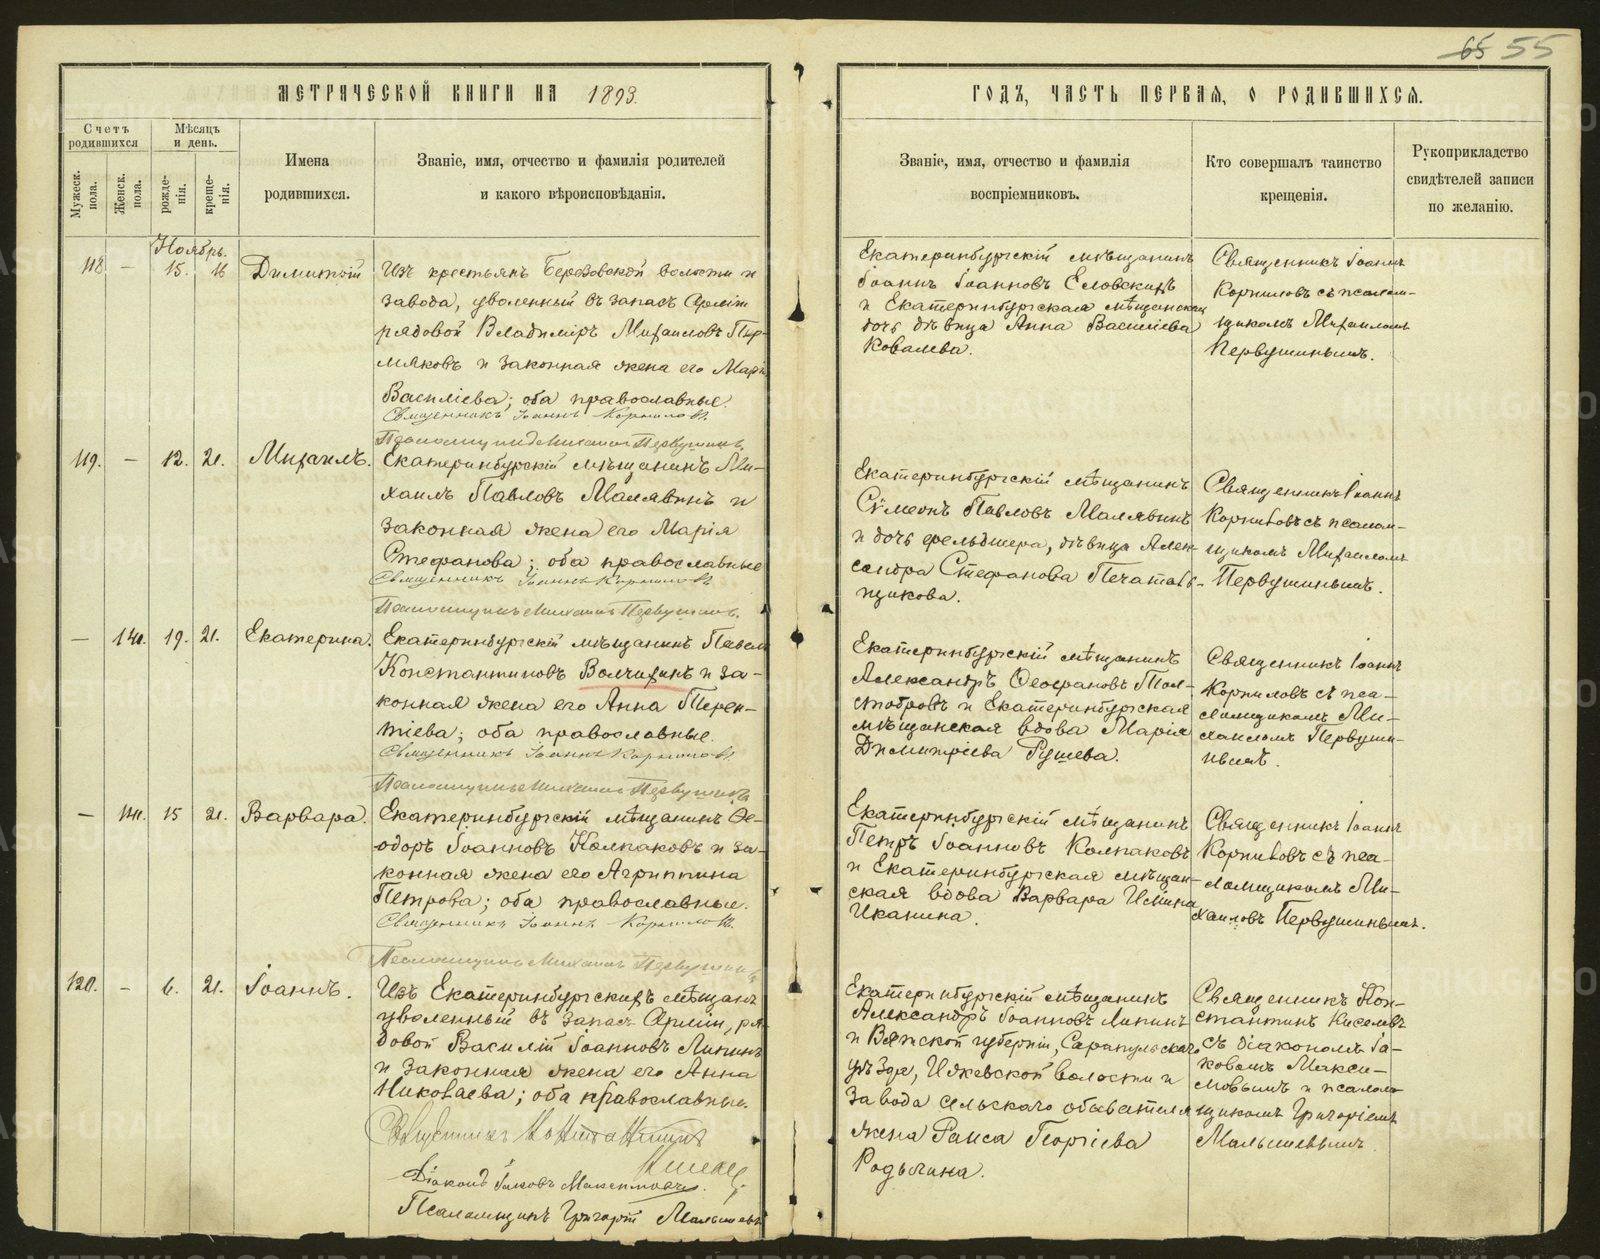 65 55
МЕТРИЧЕСКОЙ КНИГИ НА 1893.
Счетъ родившихся
Мѣсяцъ и день.
Мужеск. пола.
Женск. пола.
рожде-нія.
креще-нія.
Имена
родившихся.
Званіе, имя, отчество и фамилія родителей
и какого вѣроисповѣданія.
Ноябрь.
118 – 15. 16 Димитрій
Изъ крестьянъ Березовской волости и
завода, уволенный въ запасъ Арміи
рядовой Владиміръ Михаиловъ Пер-
мяковъ и законная жена его Марія
Василіева; оба православные.
Священникъ Іоаннъ Корниловъ.
Псаломщикъ Михаилъ Первушинъ
119. – 12. 21. Михаилъ.
Екатеринбургскій мѣщанинъ Ми-
хаилъ Павловъ Малявинъ и
законная жена его Марія
Стефанова; оба православные
Священникъ Іоаннъ Корниловъ
Псаломщикъ Михаилъ Первушинъ.
– 140. 19. 21. Екатерина.
Екатеринбургскій мѣщанинъ Павелъ
Константиновъ Волчихинъ и за-
конная жена его Анна Терен-
тіева; оба православные.
Священникъ Іоаннъ Корниловъ.
Псаломщикъ Михаилъ Первушинъ
– 141. 15 21. Варвара.
Екатеринбургскій мѣщанинъ Ѳе-
одоръ Іоанновъ Колпаковъ и за-
конная жена его Агриппина
Петрова; оба православные.
Священникъ Іоаннъ Корниловъ.
Псаломщикъ Михаилъ Первушинъ
120. – 6. 21. Іоаннъ.
Изъ Екатеринбургскихъ мѣщанъ
уволенный въ запасъ Арміи, ря-
довой Василій Іоанновъ Липинъ
и законная жена его Анна
Николаева; оба православные.
Священникъ Константинъ
Киселевъ
Діаконъ Іаковъ Максимовъ.
Псаломщикъ Григорій Малышевъ
ГОДЪ, ЧАСТЬ ПЕРВАЯ, О РОДИВШИХСЯ.
Званіе, имя, отчество и фамилія
воспріемниковъ.
Кто совершалъ таинство
крещенія.
Рукоприкладство
свидѣтелей записи
по желанію.
Екатеринбургскій мѣщанинъ
Іоаннъ Іоанновъ Еловскихъ
и Екатеринбургская мѣщанская
дочь дѣвица Анна Василіева
Ковалева.
Священникъ Іоаннъ
Корниловъ съ псалом-
щикомъ Михаиломъ
Первушинымъ.
Екатеринбургскій мѣщанинъ
Сѵмеонъ Павловъ Малявинъ
и дочь фельдшера, дѣвица Алек-
сандра Стефанова Печаталь-
щикова.
Священникъ Іоаннъ
Корниловъ съ псалом-
щикомъ Михаиломъ
Первушинымъ.
Екатеринбургскій мѣщанинъ
Александръ Ѳеофановъ Тол-
стобровъ и Екатеринбургская
мѣщанская вдова Марія
Димитріева Рушева.
Священникъ Іоаннъ
Корниловъ съ пса-
ломщикомъ Ми-
хаиломъ Первуши-
нымъ.
Екатеринбургскій мѣщанинъ
Петръ Іоанновъ Колпаковъ
и Екатеринбургская мѣщан-
ская вдова Варвара
Иканина.
Священникъ Іоаннъ
Корниловъ съ пса-
ломщикомъ Ми-
хаиловъ Первушинымъ.
Екатеринбургскій мѣщанинъ
Александръ Іоанновъ Липинъ
и Вятской губерніи, Сарапульскаго
уѣзда, Ижевской волости и
завода сельскаго обывателя
жена Раиса Георгіева
Родыгина.
Священникъ Кон-
стантинъ Киселевъ
съ діакономъ Іа-
ковомъ Макси-
мовымъ и псалом-
щикомъ Григоріемъ
Малышевымъ.